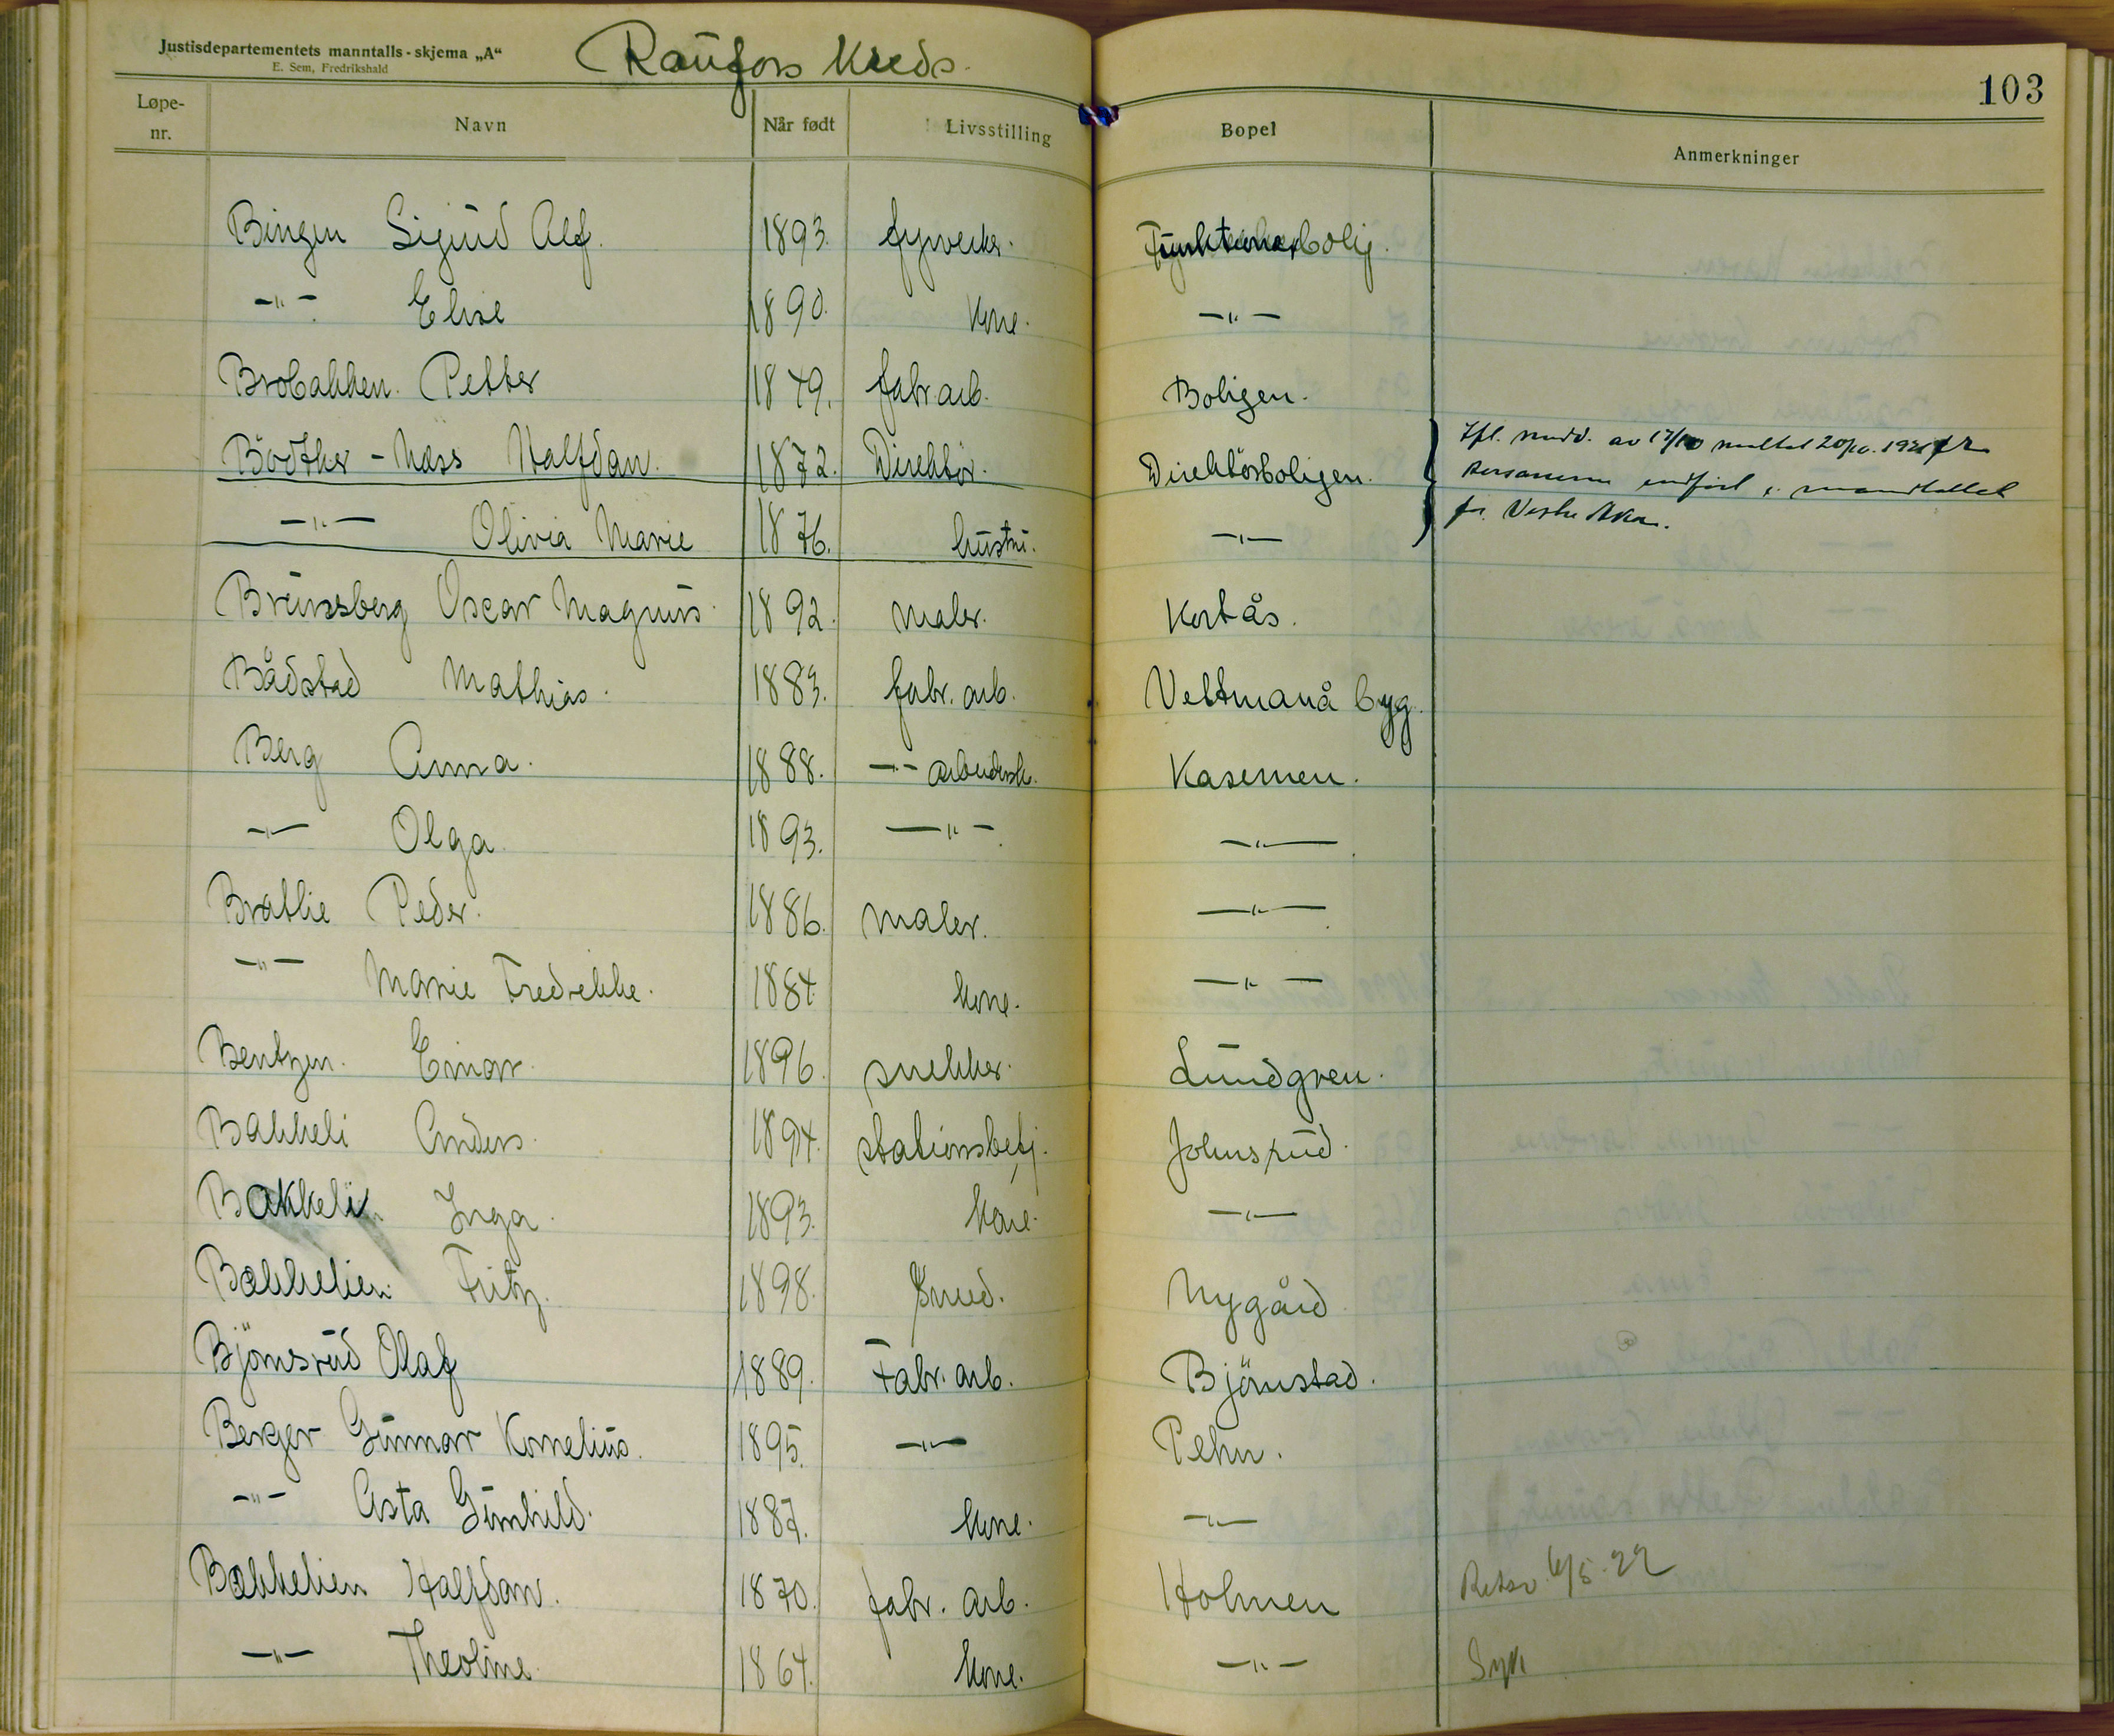 Justisdepartementets manntalls-skjema „A“
E. Sem, Fredrikshald
Raufoss Kreds.
103
Løpe-nr. Navn Når født Livsstilling Bopel Anmerkninger
Bingen Sigurd Alf. 1893. fyrverker. Funktionærbolig.
-"- Elise 1890. Kone. -"-
Brobakken. Petter 1879. fabr.arb. Boligen.
Bödtker - Næss Halfdan. 1872. Direktör. Direktörboligen. Ifl. medd. av 17/10 mottat 20/10. 1921 er
personerne indført i mandtallet
for Vestre Aker.
-"- Olivia Marie 1876. hustru. -"-
Brunsberg Oscar Magnus. 1892. maler. Kortås.
Bådstad Mathias. 1883. fabr. arb. Veltmanå byg.
Berg Anna. 1888. -"- arbeidersk. Kasernen.
-"- Olga. 1893. -"- -"-
Bratlie Peder. 1886. maler. -"-
-"- Marie Fredrikke. 1884. kone. -"-
Bentzen. Einar. 1896. snekker. Lundgren.
Bakkeli Anders. 1894. stationsbetj. Johnsrud.
Bakkeli. Inga. 1893. kone. -"-
Bakkelien. Fritz. 1898. Smed. Nygård.
Björnsrud Olaf 1889. Fabr. arb. Björnstad.
Berger Gunnar Kornelius. 1895. -"- Pehn.
-"- Asta Gunhild. 1887. kone. -"-
Bakkelien Halfdan. 1870. fabr. arb. Holmen 6/5-22
-"- Theoline. 1864. kone. -"- Syk